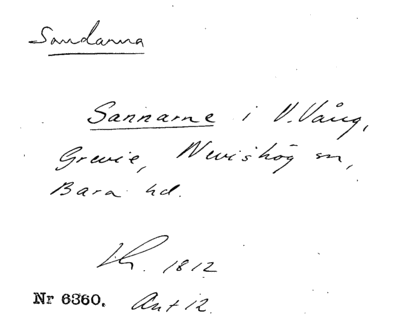 Sandarna
Sannarne i V. Vång,
Grevie, Nevishög sn,
Bara hd.
1812
Nr 6360. Ant 12.